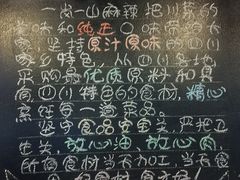 一尚一山麻辣把川菜的
美味和纯正口味
家,坚持原汁原味的四川
家乡特色,从四川各地
采购最优质原料和具
有四川特色的食材,精心
烹饪每一道菜品。
坚守食品安全关,严把卫
生关,放心油,放心肉,
所有食材当天加工,当天食